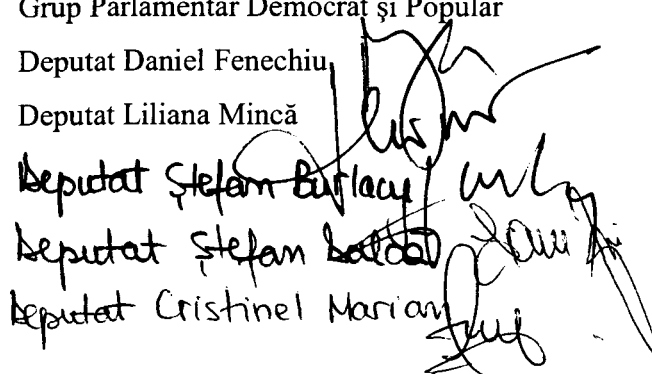 Grup Parlamentar Democrat și Popular
Deputat Daniel Fenechiu
Deputat Liliana Mincă
Deputat Ștefan Burlacu
Deputat Ștefan
Deputat Cristinel Marian